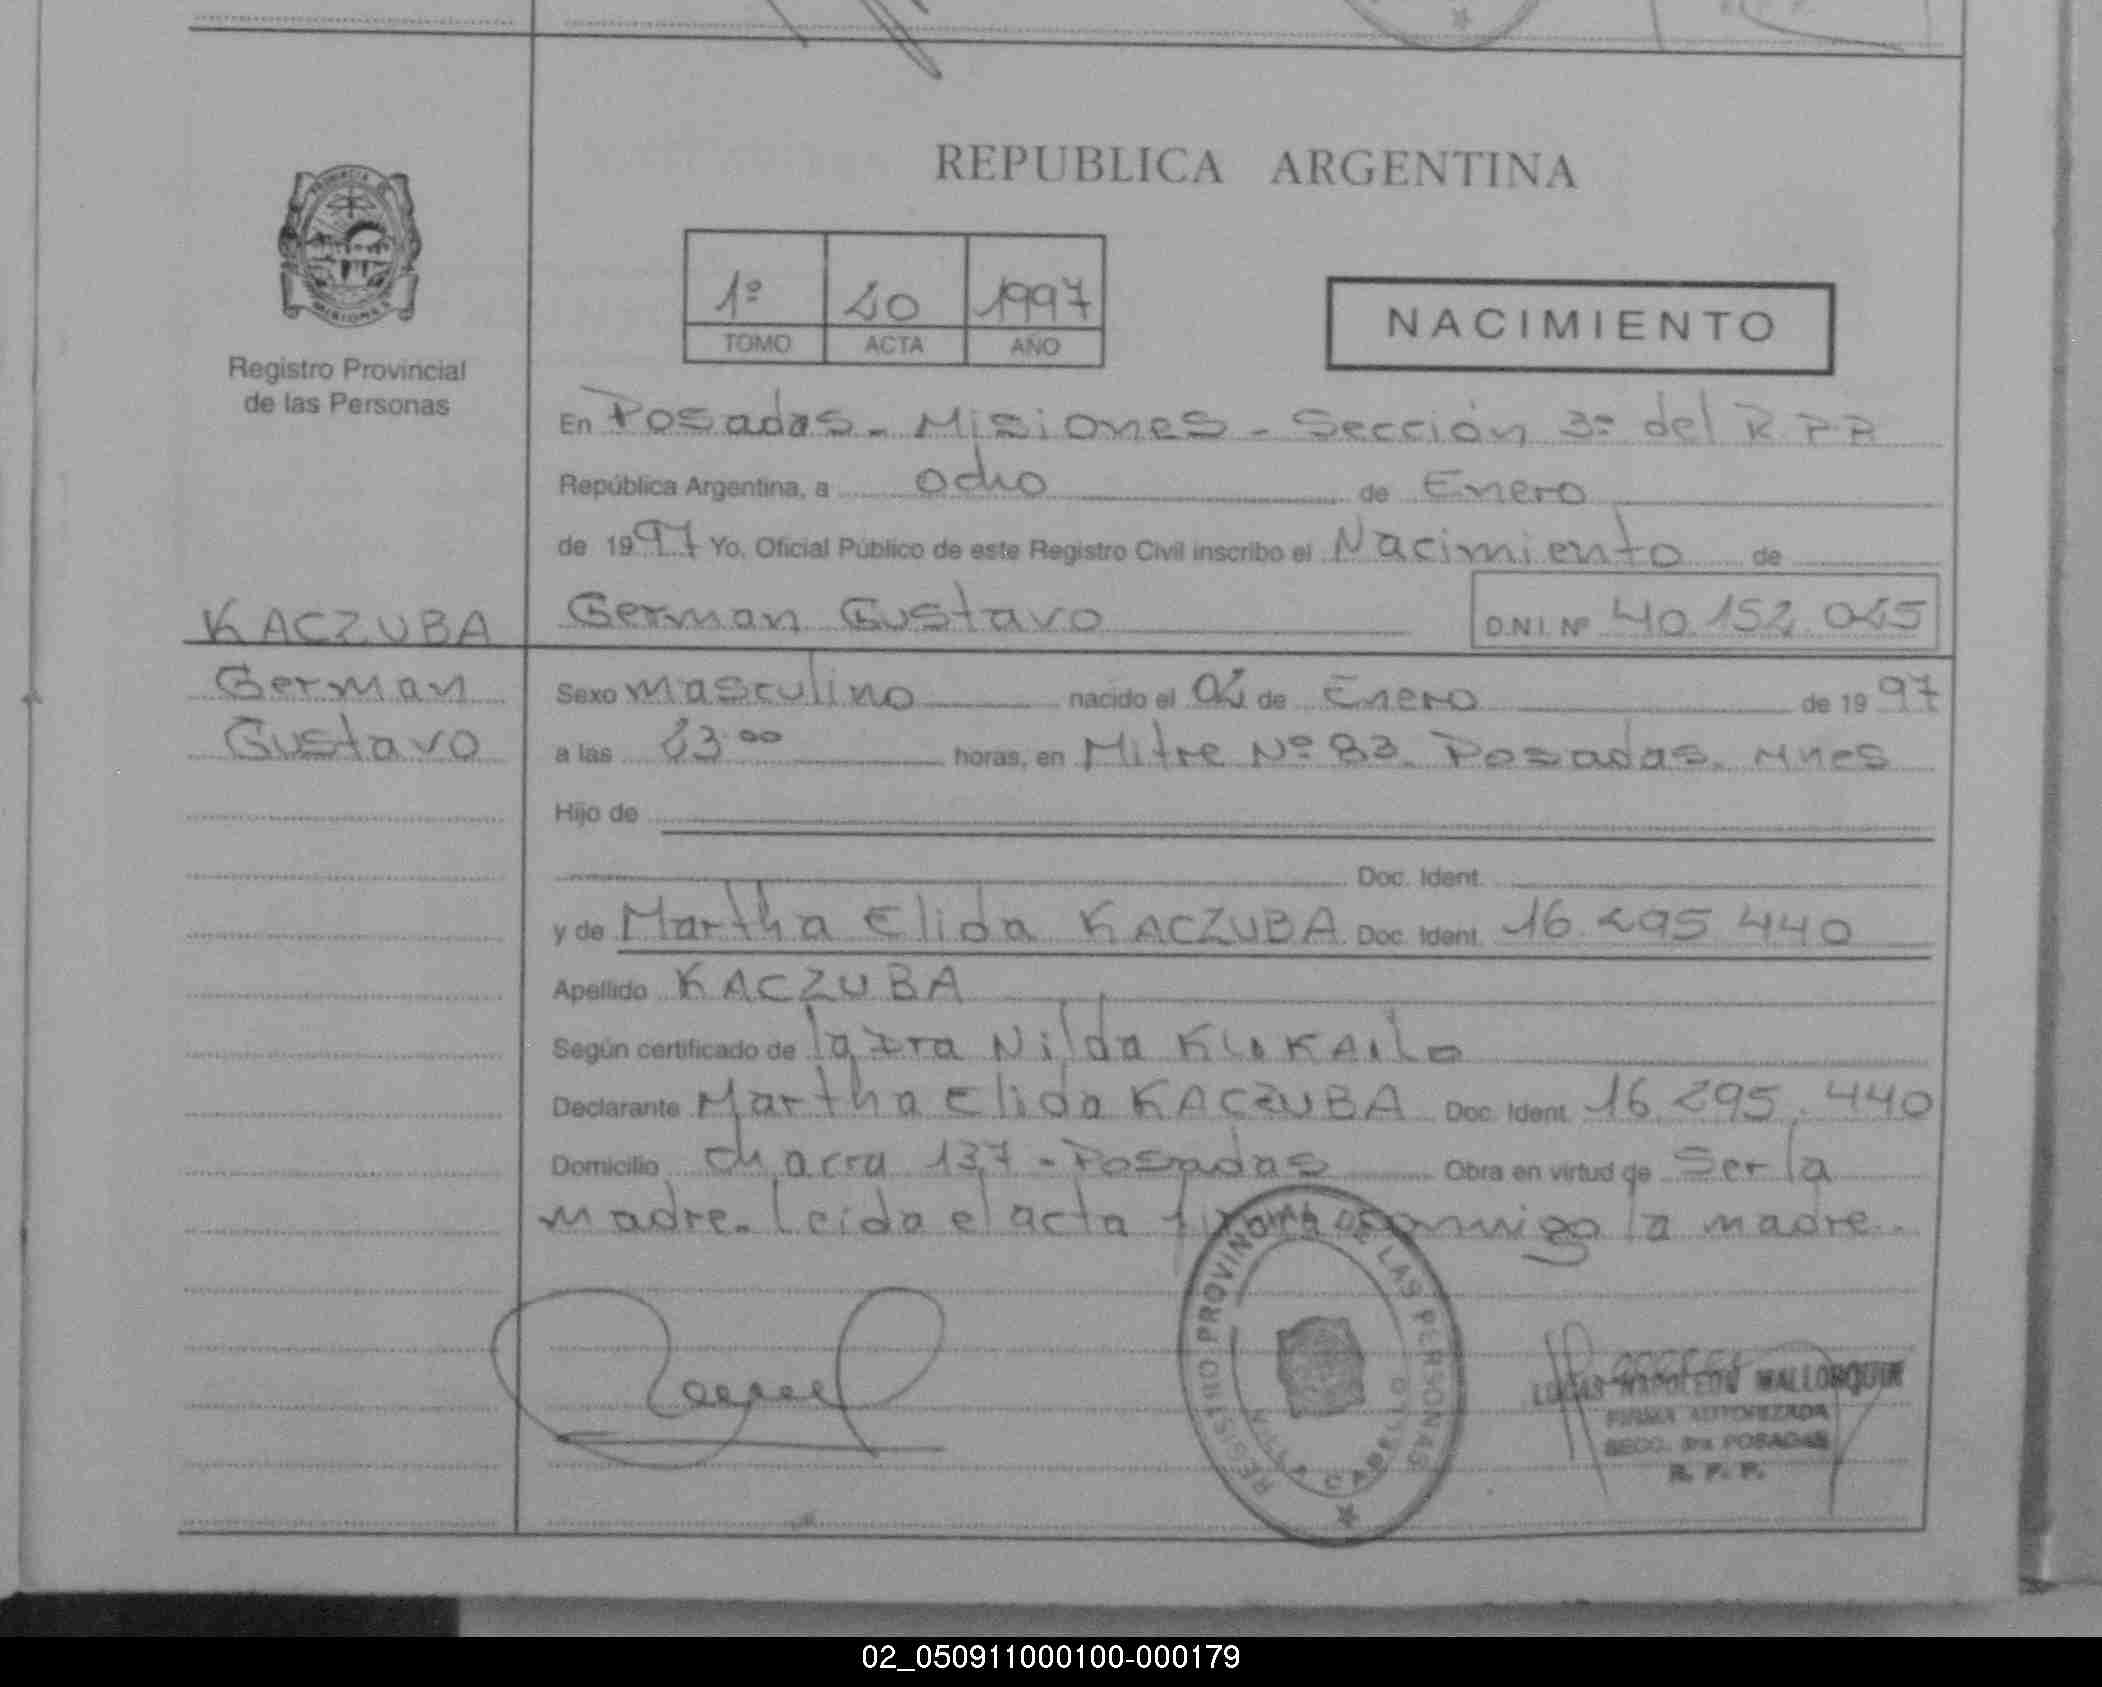 REPUBLICA ARGENTINA
1º 20 1997
TOMO ACTA AÑO
NACIMIENTO
Registro Provincial
de las Personas
En Posadas - Misiones - Sección 3º del R.P.P
República Argentina, a ocho de Enero
de 1997 Yo, Oficial Público de este Registro Civil inscribo el Nacimiento de
KACZUBA German Gustavo D.N.I. Nº 40.152.025
German Sexo masculino nacido el 02 de Enero de 1997
Gustavo a las 23:00 horas, en Mitre Nº 83. Posadas. Mnes
Hijo de
Doc. Ident.
y de Martha Elida KACZUBA Doc. Ident. 16.295.440
Apellido KACZUBA
Según certificado de Nilda
Declarante Martha Elida KACZUBA Doc. Ident. 16.295.440
Domicilio chacra 137 - Posadas Obra en virtud de Ser la
madre. Leida el acta firma conmigo la madre.
REGISTRO PROVINCIAL DE LAS PERSONAS
LUCAS NAPOLEON MALLORQUIN
FIRMA AUTORIZADA
SECC. 3ra POSADAS
R. P. P.
02_050911000100-000179